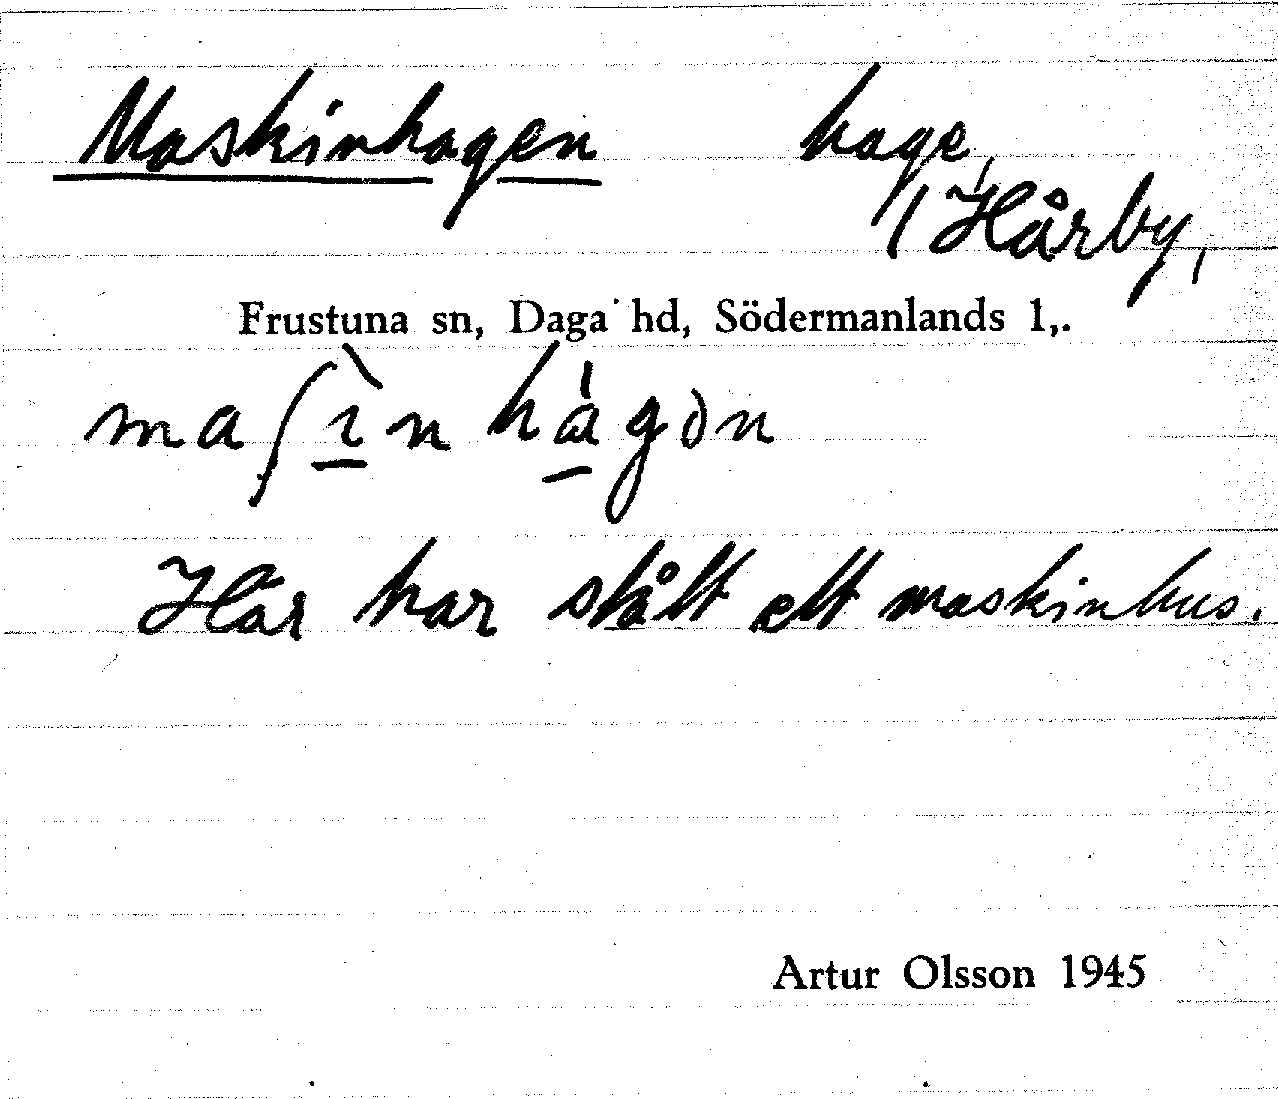 Maskinhagen hage,
/Hårby,
Frustuna sn, Daga hd, Södermanlands l,.
maʃìn hàgən
Här har stått ett maskinhus.
Artur Olsson 1945